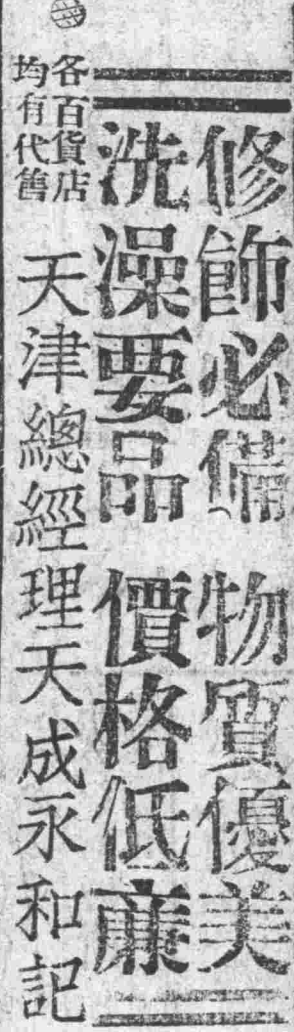 修飾必備 物質優美
洗澡要品 價格低廉
各百貨店
均有代售
天津總經理天成永和記